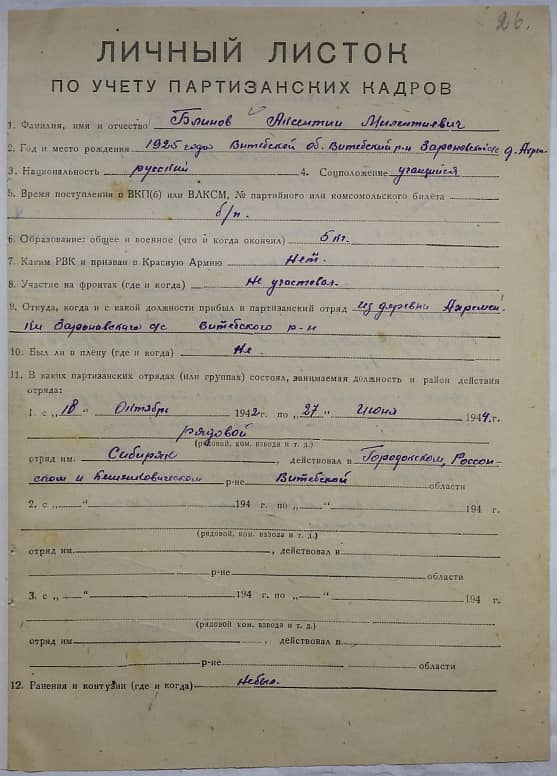 26.
ЛИЧНЫЙ ЛИСТОК
ПО УЧЕТУ ПАРТИЗАНСКИХ КАДРОВ
1. Фамилия, имя и отчество Блинов Аксентий Милентиевич
2. Год и место рождения 1925 года Витебской об. Витебский р-н Зароновский с/с д.
3. Национальность русский 4. Соцположение учащийся
5. Время поступления в ВКП(б) или ВЛКСМ, № партийного или комсомольского билета
б/п.
6. Образование: общее и военное (что и когда окончил) 5 кл.
7. Каким РВК и призван в Красную Армию Нет.
8. Участие на фронтах (где и когда) Не участвовал.
9. Откуда, когда и с какой должности прибыл в партизанский отряд из деревни
Зароновского с/с Витебского р-н
10. Был ли в плену (где и когда) Не.
11. В каких партизанских отрядах (или группах) состоял, занимаемая должность и район действия
отряда:
1. с „18" Октябрь 1942 г. по „27" Июня 1944 г.
рядовой
(рядовой, ком. взвода и т. д.)
отряд им. Сибиряк, действовал в Городокском, Россон-
ском и Бешенковическом р-не Витебской области
2. с „ " 194 г. по „ " 194 г.
(рядовой, ком. взвода и т. д.)
отряд им. , действовал в
р-не области
3. с „ " 194 г. по „ " 194 г.
(рядовой, ком. взвода и т. д.)
отряд им. , действовал в
р-не области
12. Ранения и контузии (где и когда) Не был.